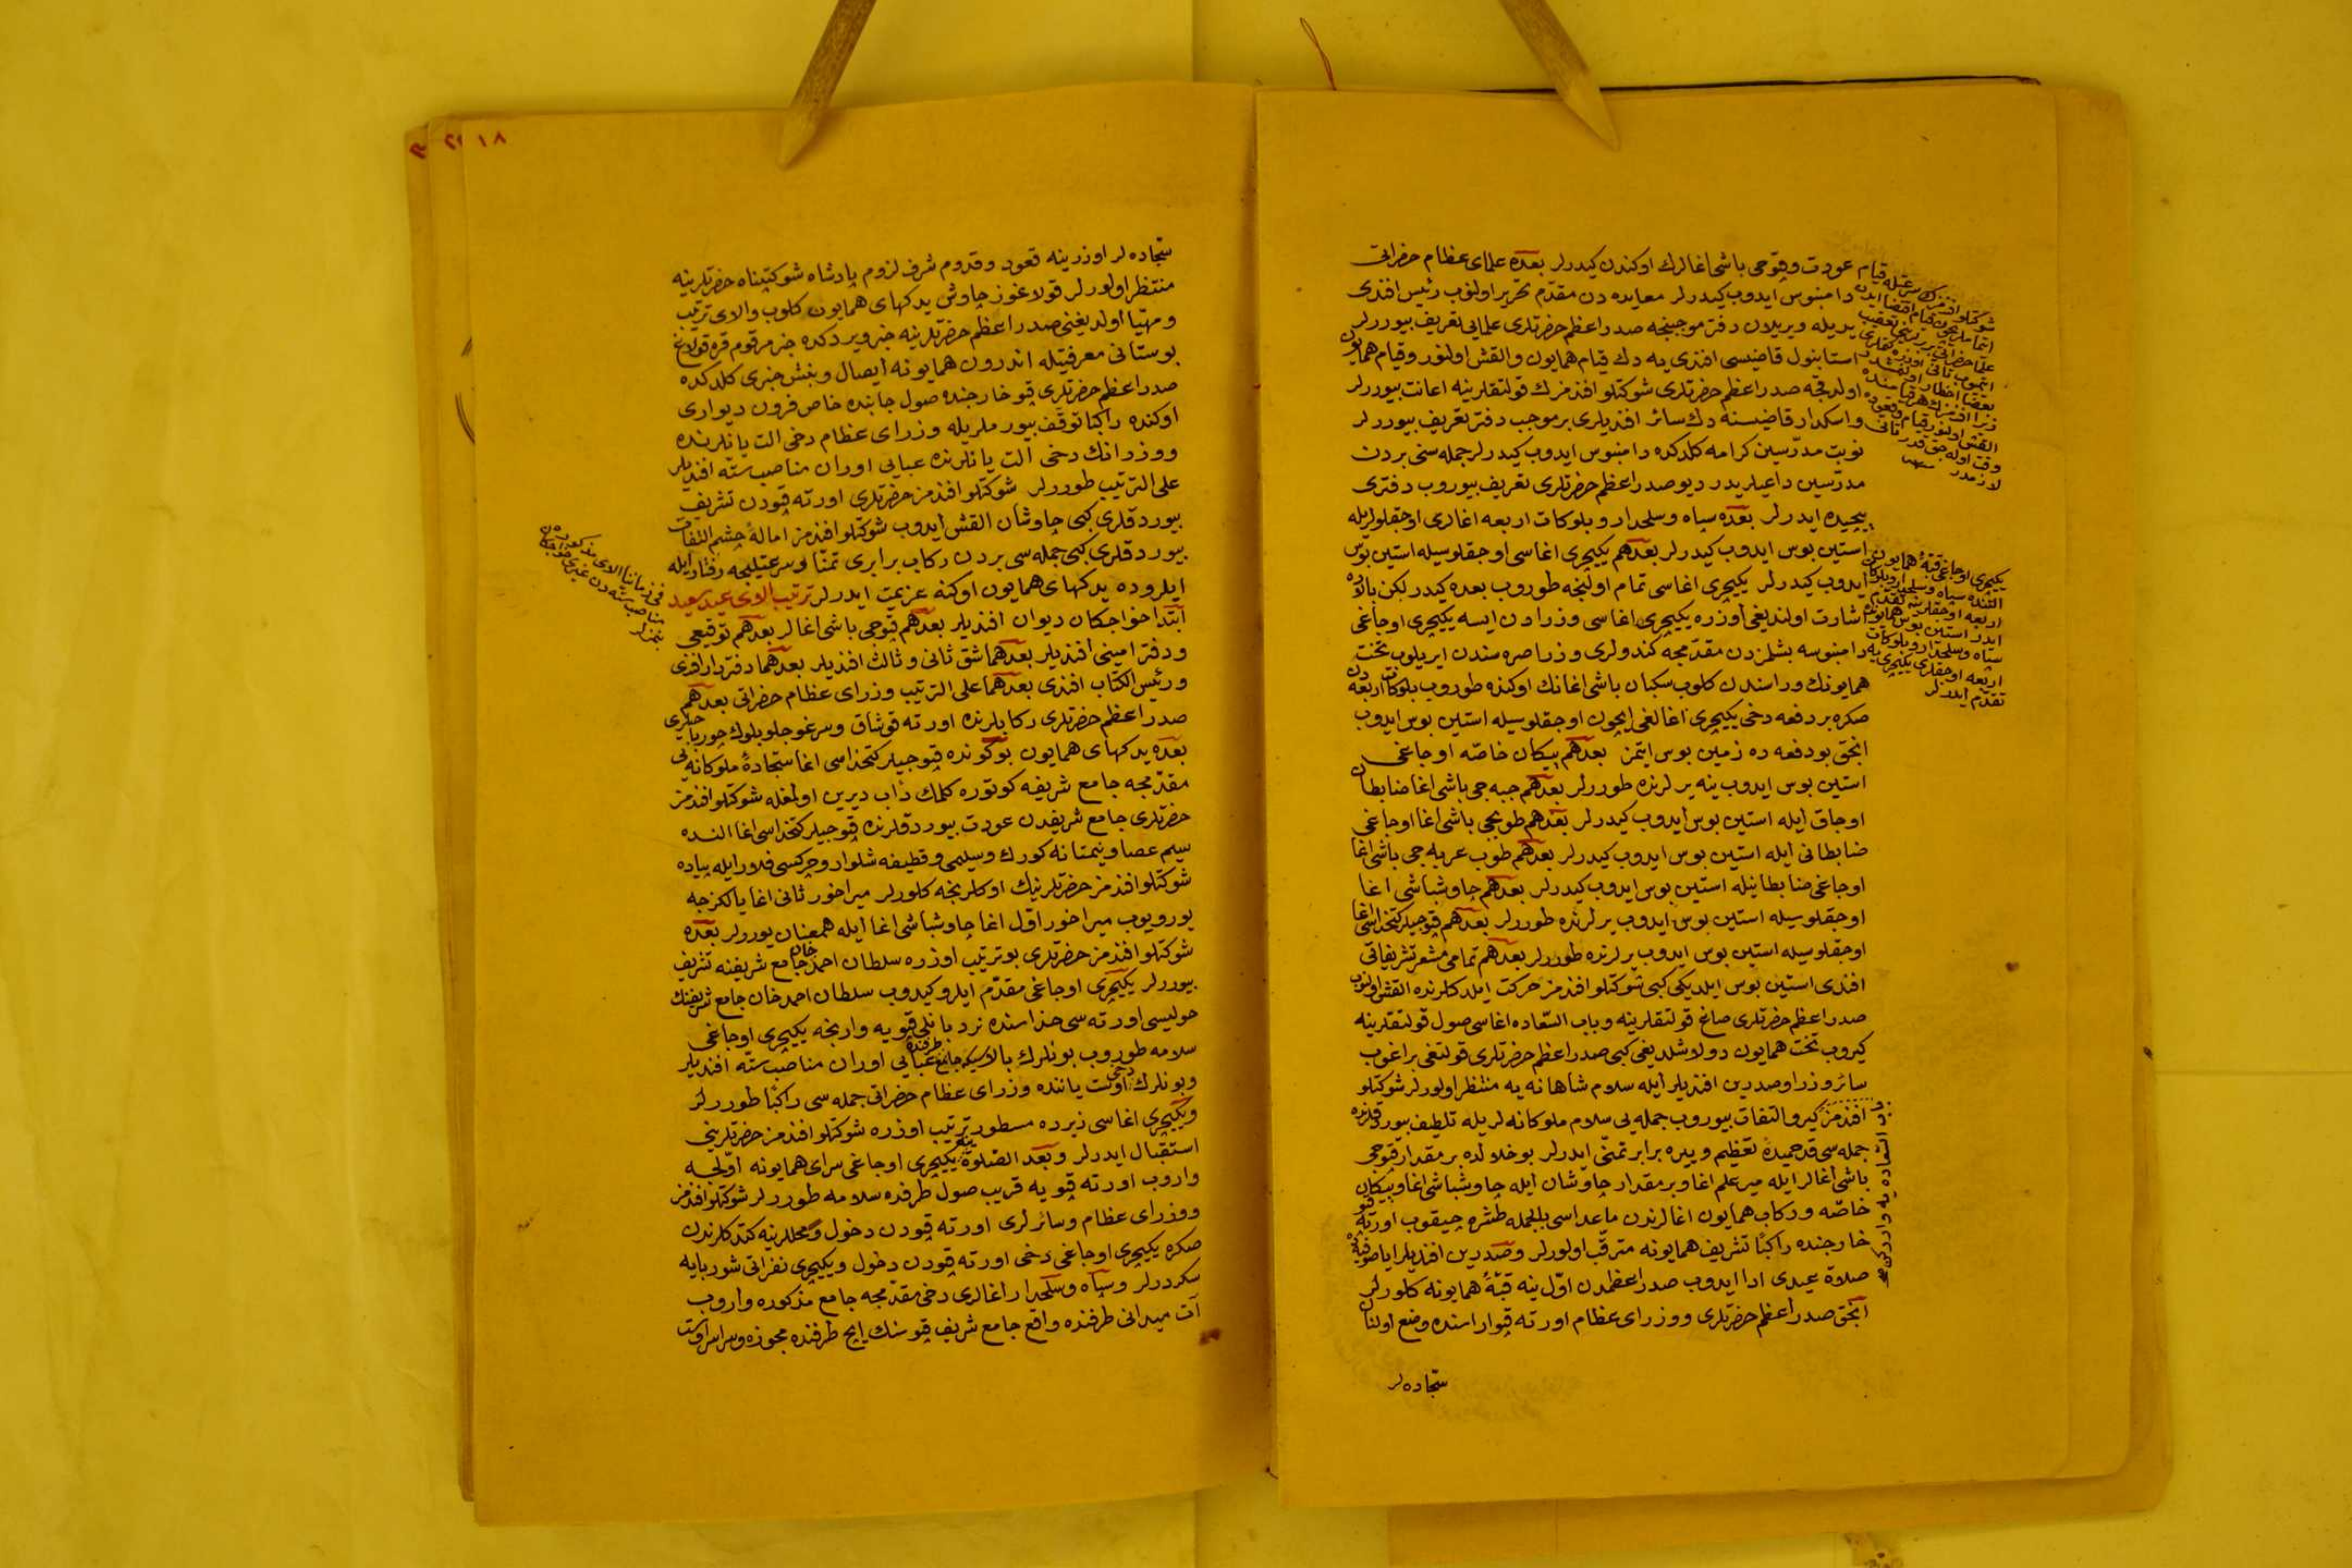 عودت وقپوجی باشی اغالرك اوكندن كیدرلر بعده علمای عظام حضراتی
دامنبوس ایدوب كیدرلر معایده دن مقدم تحریر اولنوب رئیس افندی
یدیله ویریلان دفتر موجبنجه صدراعظم حضرتلری علمایی تعریف بیوررلر
استانبول قاضیسی افندی یه دك قیام همایون والقش اولنور وقیام همایون
اولدقجه صدراعظم حضرتلری شوكتلو افندمزك قولتقلرینه اعانت بیوررلر
واسكدار قاضیسنه دك سائر افندیلری بر موجب دفتر تعریف بیوررلر
نوبت مدرسین كرامه كلدكده دامنبوس ایدوب كیدرلر جمله سنی بردن
مدرسین داعیلریدر دیو صدراعظم حضرتلری تعریف بیوروب دفتری
پیچیده ایدرلر بعده سپاه وسلحدار وبلوكات اربعه اغالری اوجقلولریله
استین بوس ایدوب كیدرلر بعدهم یكیچری اغاسی اوجقلوسیله استین بوس
ایدوب كیدرلر یكیچری اغاسی تمام اولنجه طوروب بعده كیدر لكن بالاده
اشارت اولندیغی اوزره یكیچری اغاسی وزرادن ایسه یكیچری اوجاغی
دامنبوسه بشلمزدن مقدمجه كندولری وزرا صره سندن ایریلوب تخت
همایونك وراسندن كلوب سكبان باشی اغانك اوكنده طوروب بلوكات اربعه دن
صكره بر دفعه دخی یكیچری اغالغی ایچون اوجقلوسیله استین بوس ایدوب
انجق بو دفعه ده زمین بوس ایتمز بعدهم پیكان خاصه اوجاغی
استین بوس ایدوب ینه یرلرنده طوررلر بعدهم جبه جی باشی اغا ضابطان
اوجاق ایله استین بوس ایدوب كیدرلر بعدهم طوپجی باشی اغا اوجاغی
ضابطانی ایله استین بوس ایدوب كیدرلر بعدهم طوپ عربه جی باشی اغا
اوجاغی ضابطانیله استین بوس ایدوب كیدرلر بعدهم چاوشباشی اغا
اوجقلوسیله استین بوس ایدوب یرلرنده طوررلر بعدهم قپوجیلر كتخداسی اغا
اوجقلوسیله استین بوس ایدوب یرلرنده طوررلر بعدهم تمامی مشعر تشریفاتی
افندی استین بوس ایلدیكی كبی شوكتلو افندمز حركت ایلدكلرنده القش اولنوب
صدراعظم حضرتلری صاغ قولتقلرینه وباب السعاده اغاسی صول قولتقلرینه
كیروب تخت همایون دولاشلدیغی كبی صدراعظم حضرتلری قولتغی براغوب
سائر وزرا وصدرین افندیلر ایله سلام شاهانه یه منتظر اولورلر شوكتلو
افندمز كیرو التفات بیوروب جمله یی سلام ملوكانه لریله تلطیف بیوردقلرنده
جمله سی قد خمیدۀ تعظیم ویره برابر تمنی ایدرلر بو خلالده بر مقدار قپوجی
باشی اغالر ایله میرعلم اغا وبر مقدار چاوشان ایله چاوشباشی اغا وپیكان
خاصه وركاب همایون اغالرندن ماعداسی بالجمله طشره چیقوب اورته قپو
خارجنده راكبًا تشریف همایونه مترقب اولورلر وصدرین افندیلر ایاصوفیه ده
صلاة عیدی ادا ایدوب صدراعظمدن اول ینه قبۀ همایونه كلورلر
انجق صدراعظم حضرتلری ووزرای عظام اورته قپو اراسنده وضع اولنان
سجاده لر
یكیچری اوجاغی قبۀ همایون
التنده سپاه وسلحدار وبلوكات
اربعه اوجقلرینه تقدم
ایدر استین بوس همایونده
سپاه وسلحدار وبلوكات
اربعه اوجقلری یكیچری یه
تقدم ایدرلر
١٨
سجاده لر اوزرینه قعود وقدوم شرف لزوم پادشاه شوكتپناه حضرتلرینه
منتظر اولورلر قولاغوز چاوش یدكهای همایون كلوب والای ترتیب
ومهیا اولدیغنی صدراعظم حضرتلرینه خبر ویردكده خبر مرقوم قره قولاغ
بوستانی معرفتیله اندرون همایونه ایصال وبنش خبری كلدكده
صدراعظم حضرتلری قپو خارجنده صول جانبده خاص فرون دیواری
اوكنده راكبًا توقف بیورملریله وزرای عظام دخی الت یانلرنده
ووزرانك دخی الت یانلرنده عبایی اوران مناصب سته افندیلر
علی الترتیب طوررلر شوكتلو افندمز حضرتلری اورته قپودن تشریف
بیوردقلری كبی چاوشان القش ایدوب شوكتلو افندمز امالۀ چشم التفات
بیوردقلری كبی جمله سی بردن ركاب برابری تمنا وسرعتلیجه رفتار ایله
ایلروده یدكهای همایون اوكنه عزیمت ایدرلر ترتیب الای عید سعید
ابتدا خواجكان دیوان افندیلر بعدهم قپوجی باشی اغالر بعدهم توقیعی
ودفتر امینی افندیلر بعدهما شق ثانی وثالث افندیلر بعدهما دفتردار افندی
ورئیس الكتاب افندی بعدهما علی الترتیب وزرای عظام حضراتی بعدهم
صدراعظم حضرتلری ركابلرنده اورته قوشاق وسرغوجلو بلوك چورباجیلری
بعده یدكهای همایون بوكونده قپوجیلر كتخداسی اغا سجادۀ ملوكانه یی
مقدمجه جامع شریفه كوتوره كلمك داب دیرین اولمغله شوكتلو افندمز
حضرتلری جامع شریفدن عودت بیوردقلرنده قپوجیلر كتخداسی اغا النده
سیم عصا ونیمتانه كورك وسلیمی وقطیفه شلوار وچركسی فلار ایله پیاده
شوكتلو افندمز حضرتلرینك اوكلرنجه كلورلر میراخور ثانی اغا یالكزجه
یورویوب میراخور اول اغا چاوشباشی اغا ایله همعنان یوررلر بعده
شوكتلو افندمز حضرتلری بو ترتیب اوزره سلطان احمد خان جامع شریفنه تشریف
بیوررلر یكیچری اوجاغی مقدم ایلرو كیدوب سلطان احمد خان جامع شریفنك
حولیسی اورته سی حذاسنده نردبانلی قپویه وارنجه یكیچری اوجاغی
سلامه طوروب بونلرك بالاسیكه جامع طرفنده عبایی اوران مناصب سته افندیلر
وبونلرك دخی اوست یاننده وزرای عظام حضراتی جمله سی راكبًا طوررلر
ویكیچری اغاسی زیرده مسطور ترتیب اوزره شوكتلو افندمز حضرتلرینی
استقبال ایدرلر وبعد الصلوة ینه یكیچری اوجاغی سرای همایونه اولجه
واروب اورته قپویه قریب صول طرفده سلامه طوررلر شوكتلو افندمز
ووزرای عظام وسائرلری اورته قپودن دخول ومحللرینه كتدكلرندن
صكره یكیچری اوجاغی دخی اورته قپودن دخول ویكیچری نفراتی شوربایه
سكردرلر وسپاه وسلحدار اغالری دخی مقدمجه جامع مذكوره واروب
آت میدانی طرفنده واقع جامع شریف قپوسنك ایچ طرفنده مجوزه وسراسر اوست